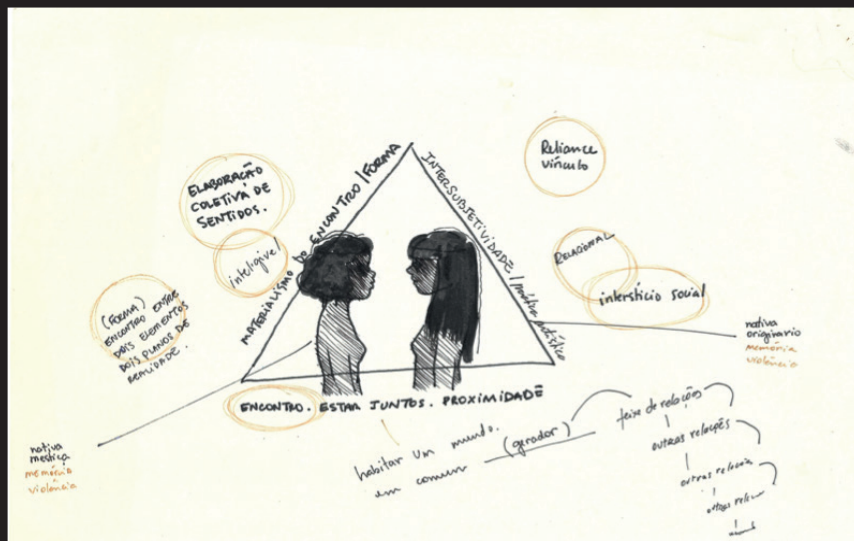 ELABORAÇÃO
COLETIVA DE
SENTIDOS.
inteligível
(FORMA)
ENCONTRO ENTRE
DOIS ELEMENTOS
DOIS PLANOS DE
REALIDADE.
MATERIALISMO DO ENCONTRO / FORMA
INTERSUBJETIVIDADE / prática artística
Reliance
vínculo
RELACIONAL
interstício social
nativa
originario
memória
violência
ENCONTRO. ESTAR JUNTOS. PROXIMIDADE
nativa
mestiça
memória
violência
habitar um mundo.
em comum (gerador)
feixe de relações
outras relações
outras relações
outras